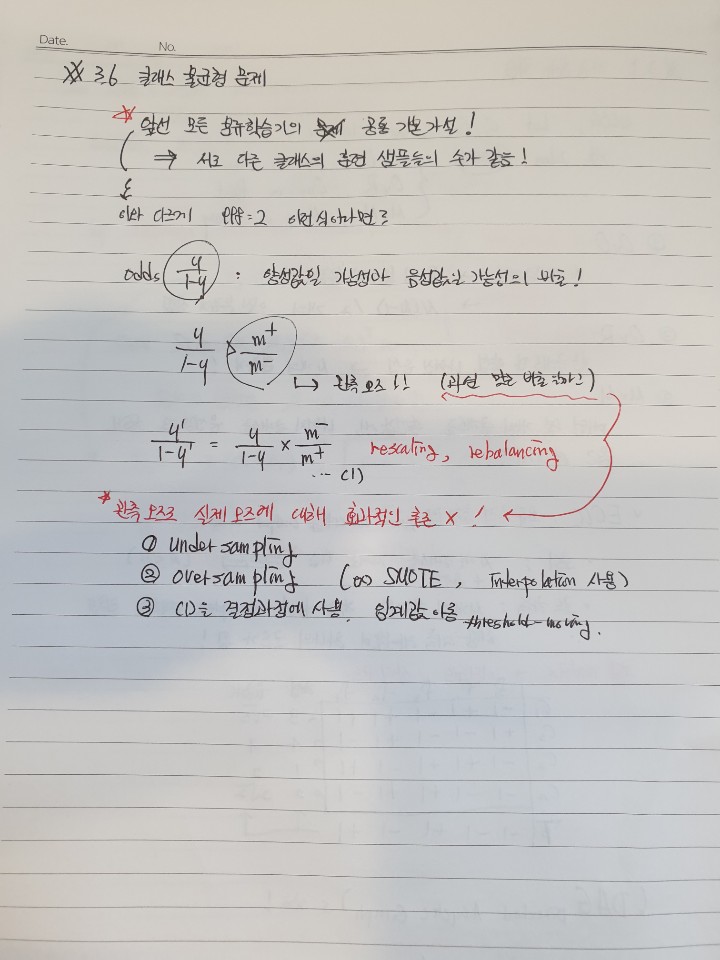 Date.
No.
※ 3.6 클래스 불균형 문제
* 앞선 모든 분류학습기의 공통 기본가설!
⇒ 서로 다른 클래스의 훈련 샘플들의 수가 같음!
이와 다르게 이런식이라면?
odds y/1-y : 양성값일 가능성과 음성값일 가능성의 비율!
y/1-y > m⁺/m⁻
↳ 관측 오즈!! (과연 맞는 비율일까?)
y'/1-y' = y/1-y × m⁻/m⁺ rescaling, rebalancing
... (1)
* 관측 오즈로 실제 오즈에 대해 효과적인 추론 X !
① under sampling
② over sampling (ex) SMOTE, interpolation 사용)
③ (1)을 결정과정에 사용. 임계값 이동 threshold-moving.